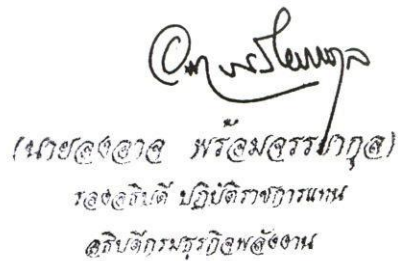 (นายองอาจ พร้อมจรรยากุล)
รองอธิบดี ปฏิบัติราชการแทน
อธิบดีกรมธุรกิจพลังงาน